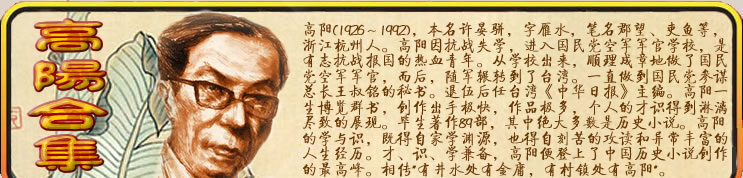 高陽合集
高阳(1926~1992)，本名许晏骈，字雁冰，笔名郡望、吏鱼等，
浙江杭州人。高阳因抗战失学，进入国民党空军军官学校，是
有志抗战报国的热血青年。从学校出来，顺理成章地做了国民
党空军军官，而后，随军辗转到了台湾。一直做到国民党参谋
总长王叔铭的秘书。退伍后任台湾《中华日报》主编。高阳一
生博览群书，创作出手极快，作品极多，个人的才识得到淋漓
尽致的展现。毕生著作89部，其中绝大多数是历史小说。高阳
的学与识，既得自家学渊源，也得自刻苦的攻读和异常丰富的
人生经历。才、识、学兼备，高阳便登上了中国历史小说创作
的最高峰。相传"有井水处有金庸，有村镇处有高阳"。